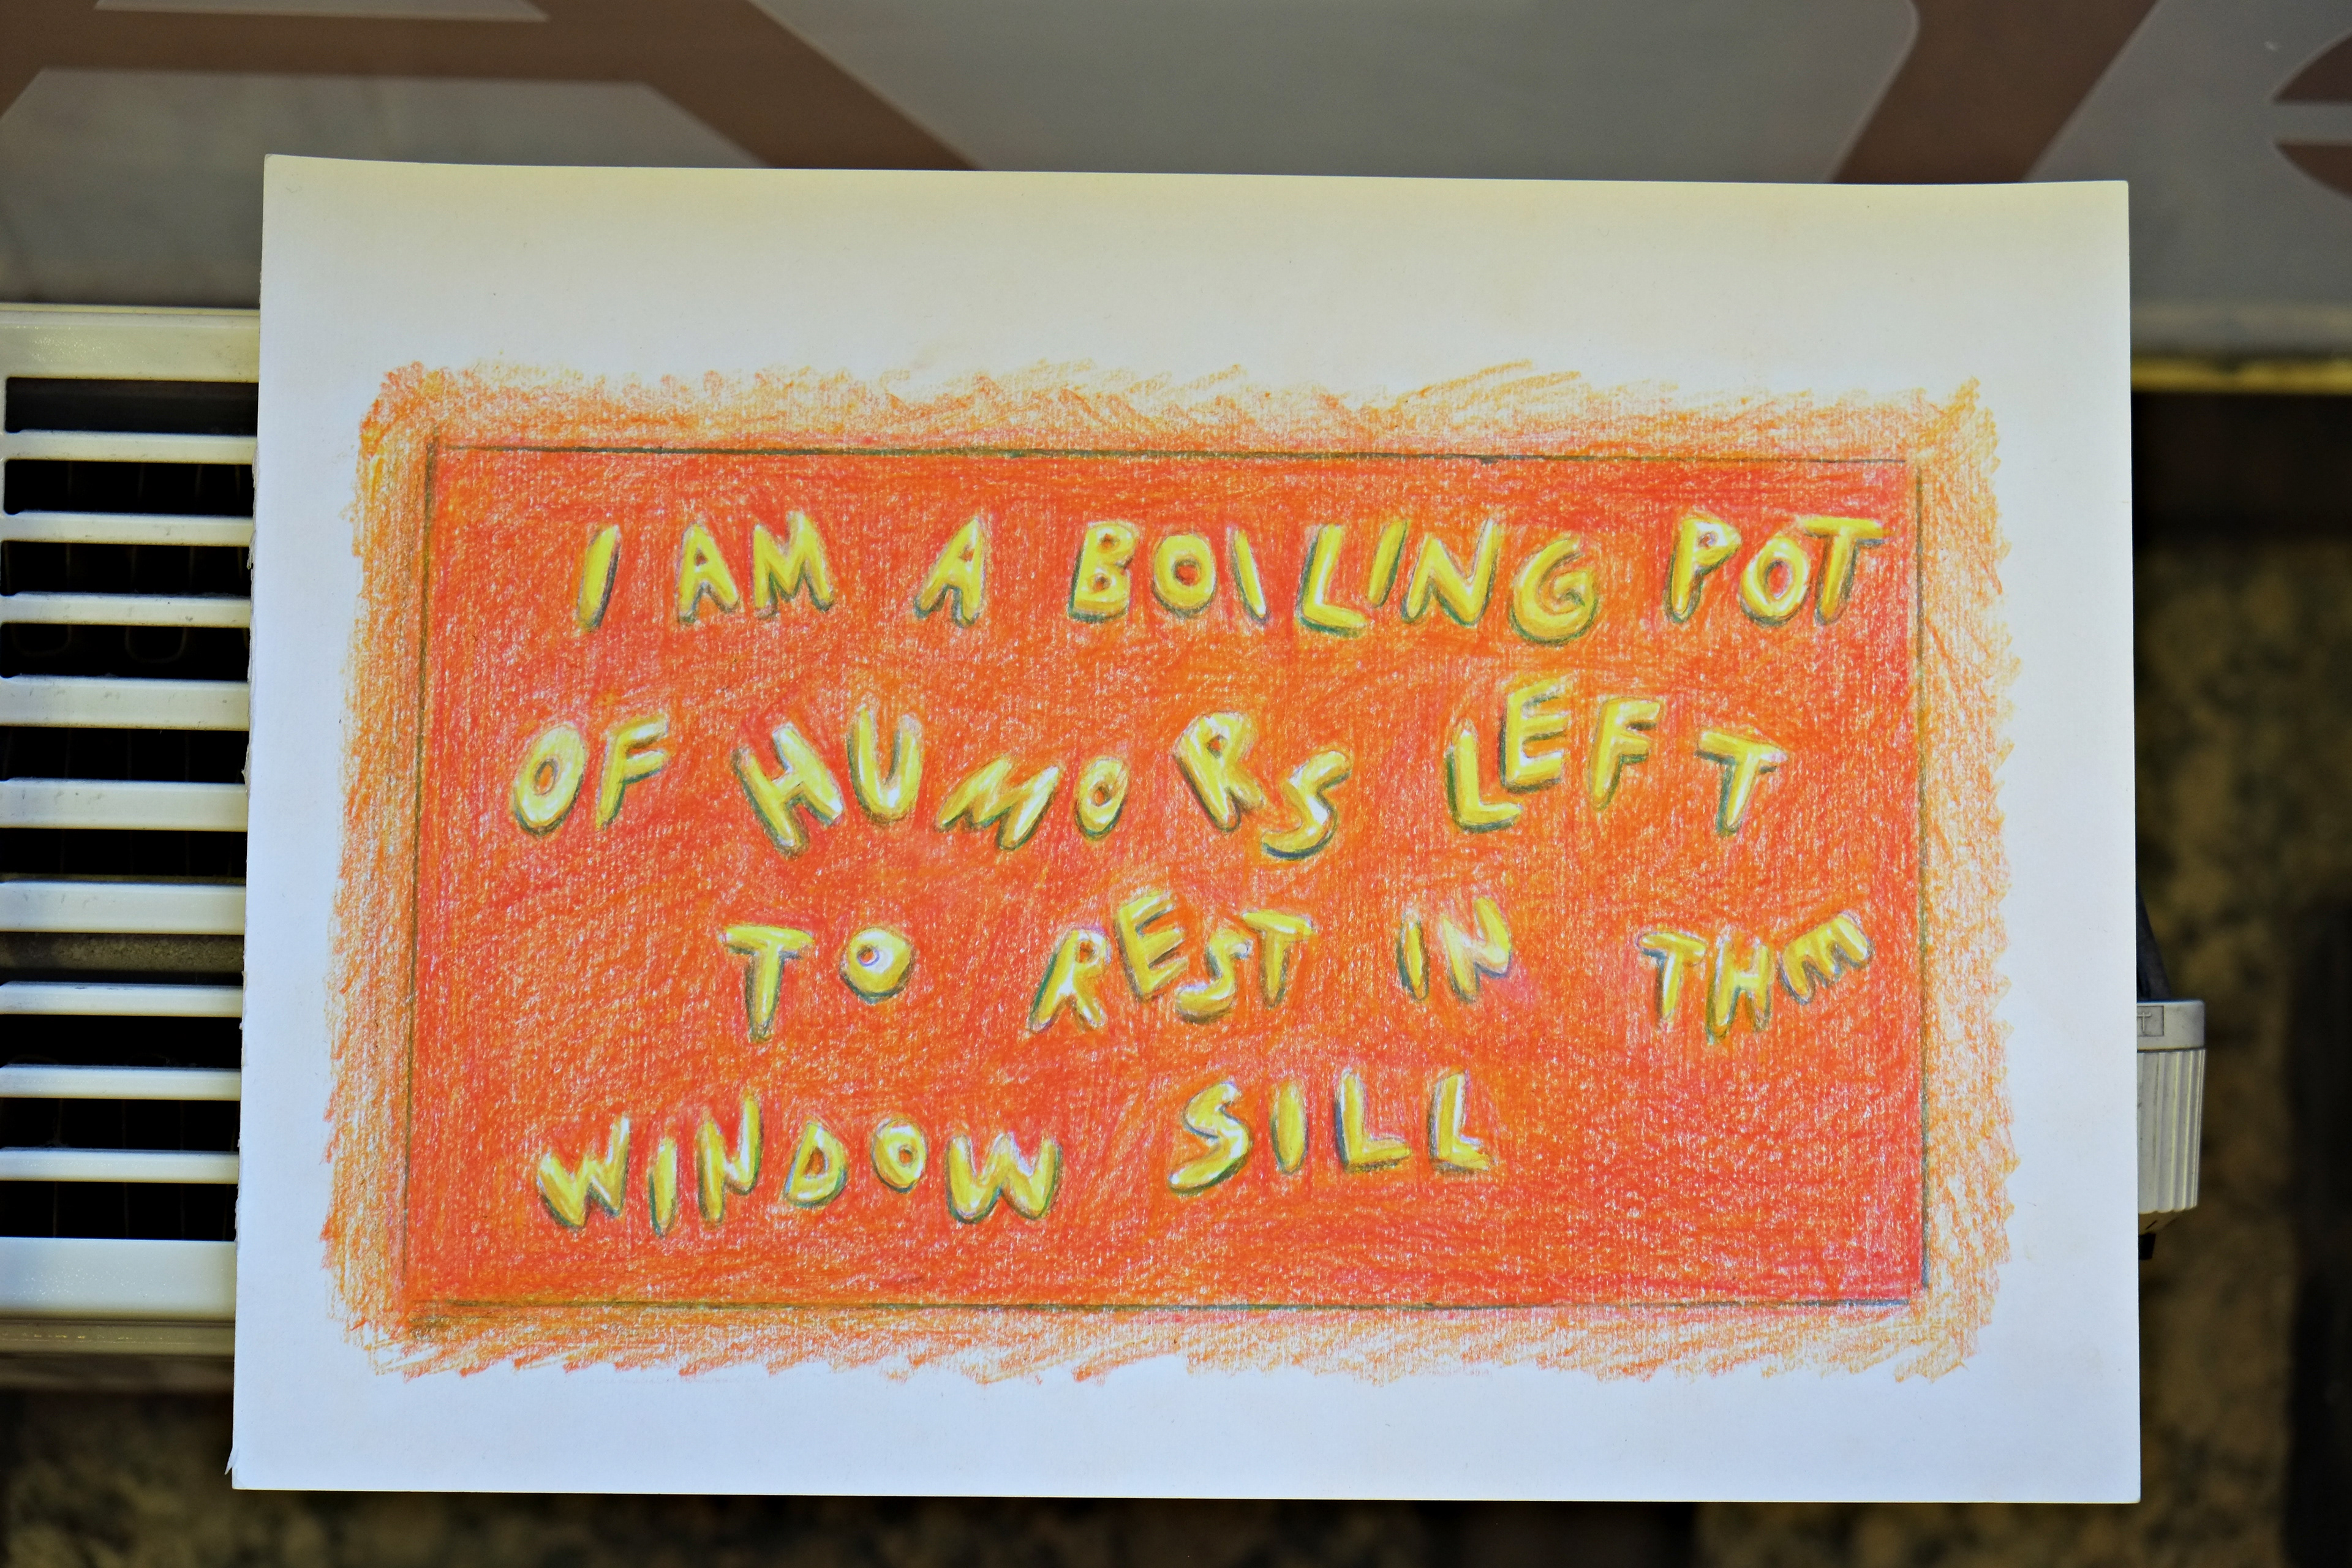 I AM A BOILING POT
OF HUMORS LEFT
TO REST IN THE
WINDOW SILL